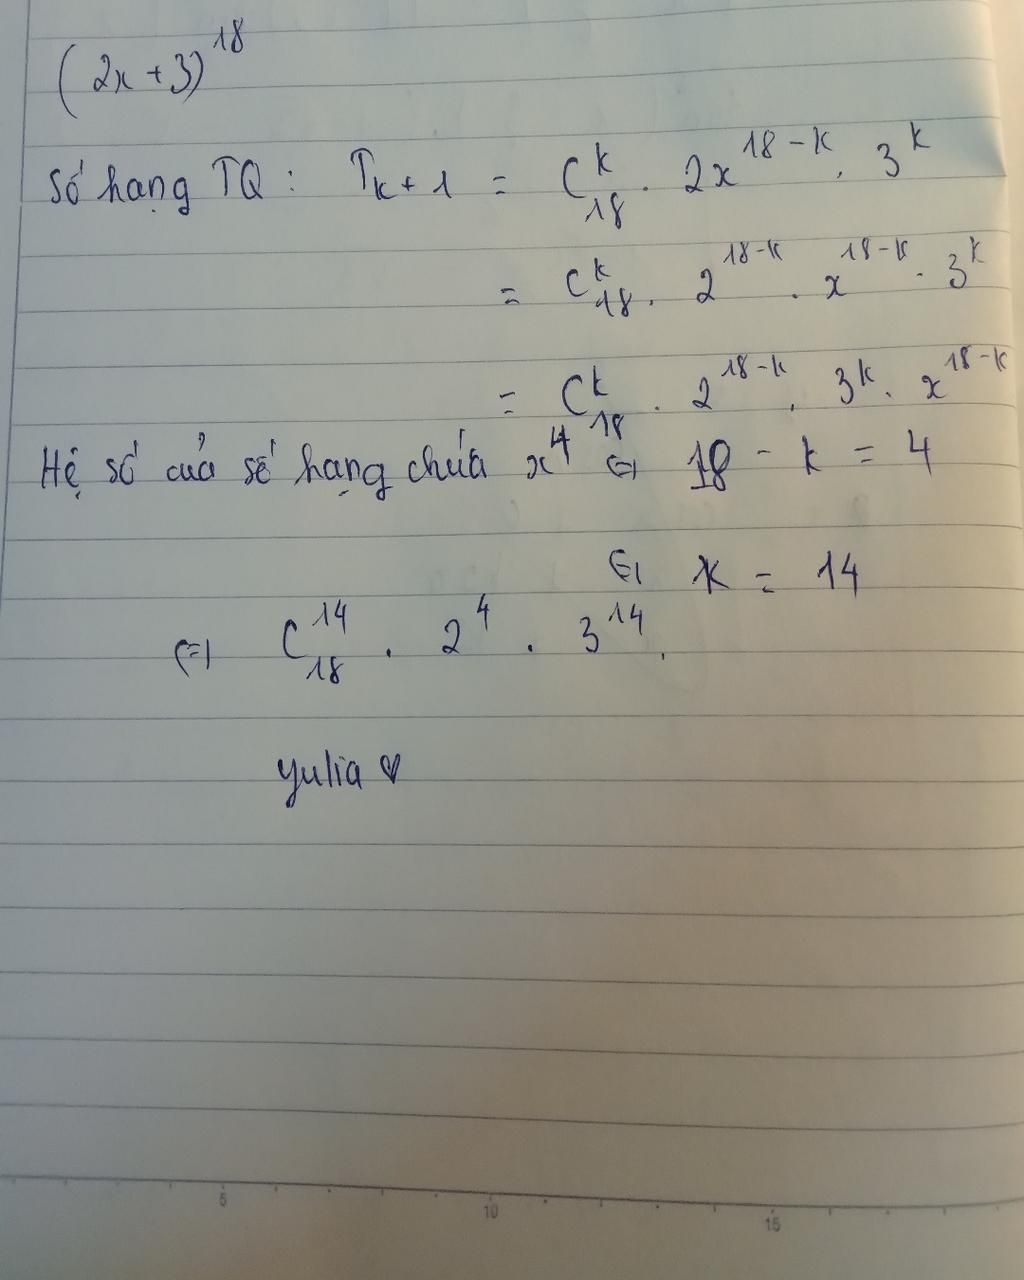 (2x+3)^18
Số hạng TQ : T_{k+1} = C_18^k . 2x^{18-k} . 3^k
= C_18^k . 2^{18-k} . x^{18-k} . 3^k
= C_18^k . 2^{18-k} . 3^k . x^{18-k}
Hệ số của số hạng chứa x^4 ⇔ 18 - k = 4
⇔ k = 14
⇔ C_18^14 . 2^4 . 3^14 .
yulia ♥
5 10 15